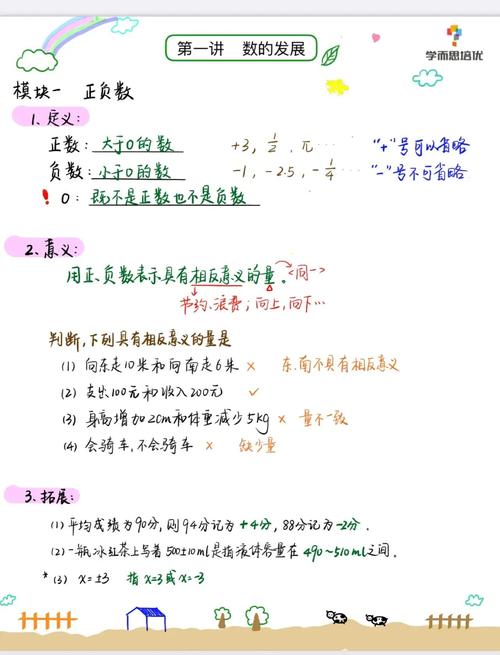 第一讲 数的发展
学而思培优
模块一 正负数
1、定义:
正数: 大于0的数 +3, 1/2, π…… "+"号可以省略
负数: 小于0的数 -1, -2.5, -1/4 "-"号不可省略
! 0: 既不是正数也不是负数
2、意义:
用正、负数表示具有相反意义的量。<同一>
节约、浪费; 向上, 向下…
判断,下列具有相反意义的量是
(1) 向东走10米和向南走6米 × 东、南不具有相反意义
(2) 支出100元和收入200元 ✓
(3) 身高增加2cm和体重减少5kg × 量不一致
(4) 会骑车,不会骑车 × 缺少量
3、拓展:
(1) 平均成绩为90分, 则94分记为+4分, 88分记为-2分.
(2) 一瓶冰红茶上写着500±10ml是指液体容量在490~510ml之间.
* (3) x=±3 指 x=3或x=-3